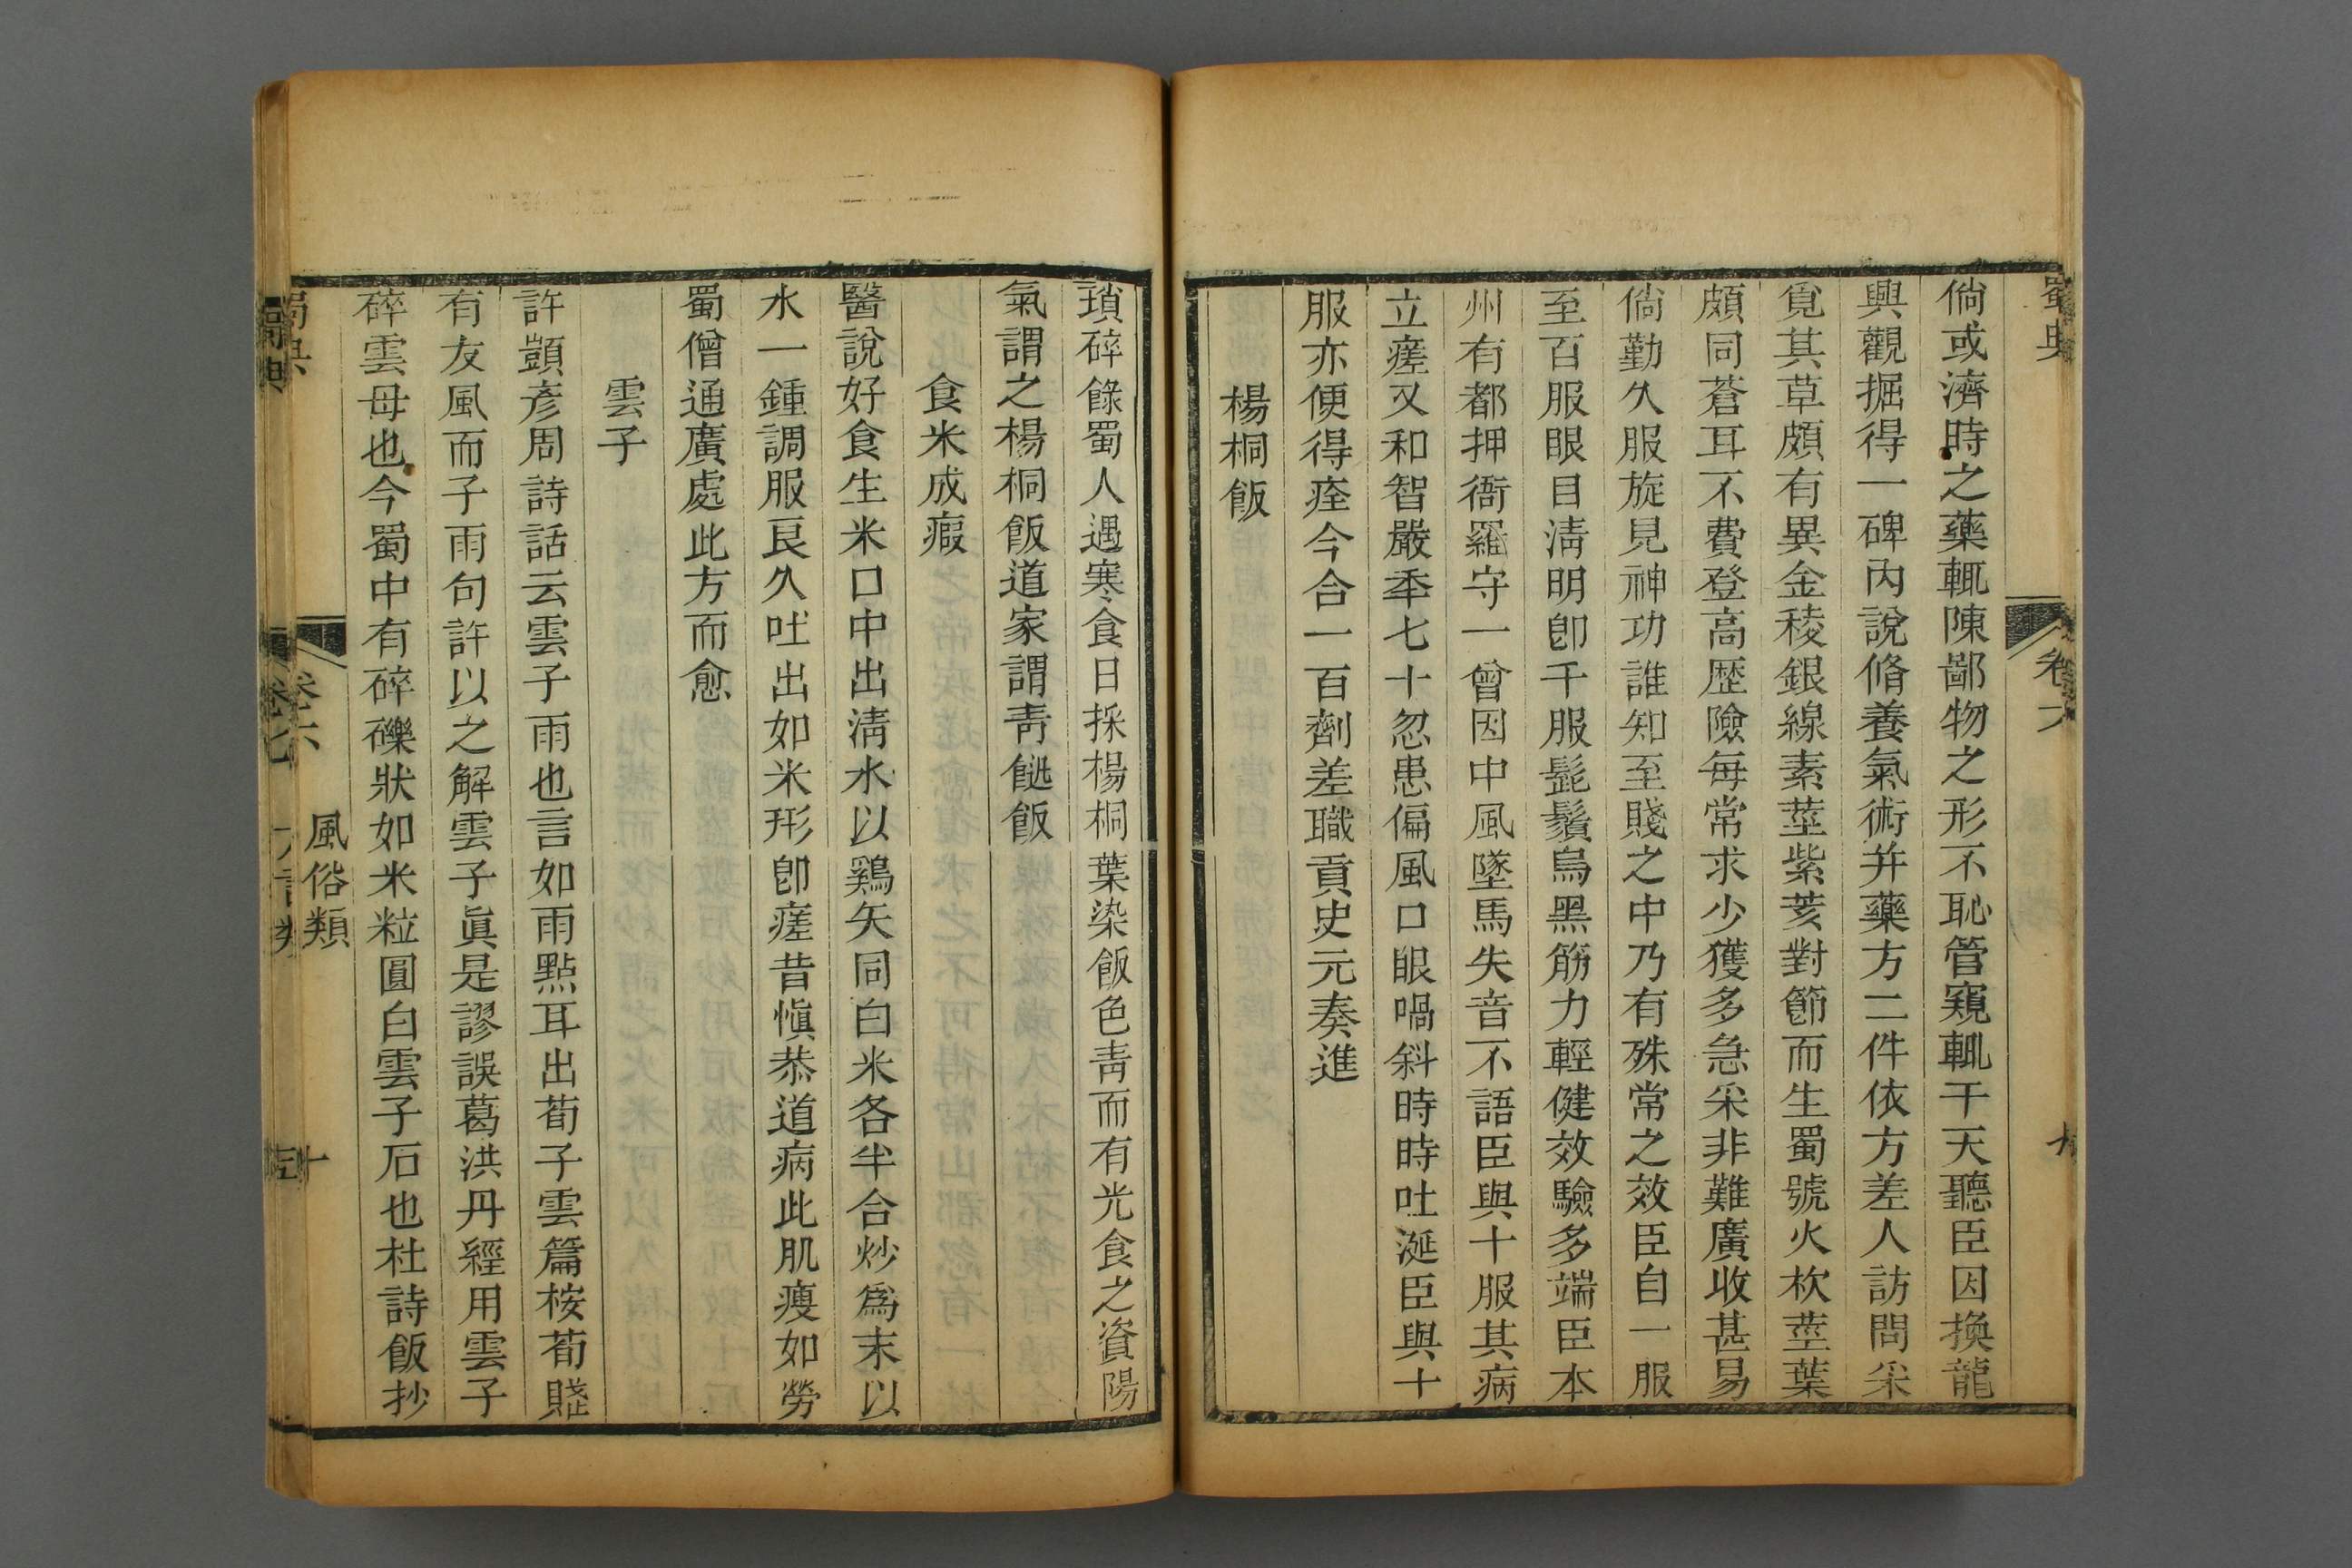 蜀典 卷六 九
倘或濟時之藥輒陳鄙物之形不恥管窺輒干天聽臣因換龍
興觀掘得一碑內說脩養氣術并藥方二件依方差人訪問采
覓其草頗有異金稜銀線素莖紫荄對節而生蜀號火杴莖葉
頗同蒼耳不費登高歷險每常求少獲多急采非難廣收甚易
倘勤久服旋見神功誰知至賤之中乃有殊常之效臣自一服
至百服眼目淸明卽千服髭鬚烏黑筋力輕健效驗多端臣本
州有都押衙羅守一曾因中風墜馬失音不語臣與十服其病
立瘥又和智嚴秊七十忽患偏風口眼喎斜時時吐涎臣與十
服亦便得痊今合一百劑差職貢史元奏進
楊桐飯
瑣碎錄蜀人遇寒食日採楊桐葉染飯色靑而有光食之資陽
氣謂之楊桐飯道家謂靑䭀飯
食米成瘕
醫說好食生米口中出淸水以鷄矢同白米各半合炒爲末以
水一鍾調服良久吐出如米形卽瘥昔愼恭道病此肌瘦如勞
蜀僧道廣處此方而愈
雲子
許顗彥周詩話云雲子雨也言如雨點耳出荀子雲篇桉荀賤
有友風而子雨句許以之解雲子眞是謬誤葛洪丹經用雲子
碎雲母也今蜀中有碎礫狀如米粒圓白雲子石也杜詩飯抄
卷六 風俗類 十